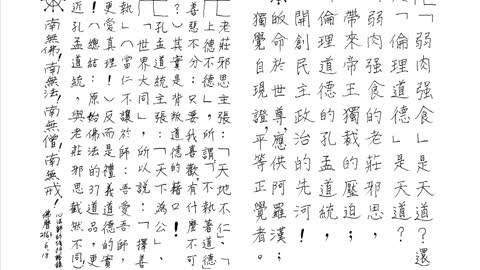 卍「弱肉強食」是天道?還
是「倫理道德」是天道?
弱肉強食的老莊邪思,
帶來帝王獨裁的壓迫;
倫理道德的孔孟道統,
開創民主政治的先河;
皈命於世尊,應供阿羅漢!
獨覺自現證,平等正覺者。
卍老莊邪思主張:「天地不仁、
上德不德」,所謂「不執著道德、
善惡不分:只要我喜歡,有什麼不可
?」其實是背叛道德的藉口!
卍孔孟道統主張:「天下為公、
「世界大同」,所以說:「擇善
固執」(當仁不讓於師:吾愛吾師,
更愛真理!)反而是禮義道德的實
踐!(總結:原始佛法的37道品,更
近孔孟道統,與老莊邪思截然不同)
南無佛!南無法!南無僧!南無戒!
佛曆2563.6.18